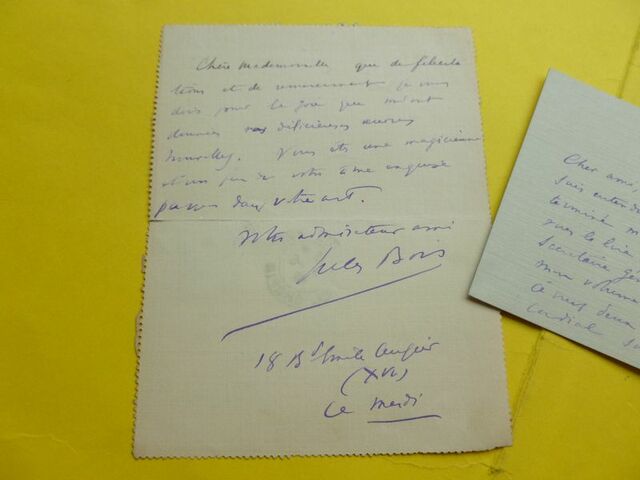 Chère Mademoiselle que de félicita
tions et de remerciements je vous
dois pour la joie que m'ont
données vos délicieuses œuvres
nouvelles. Vous êtes une magicienne
et un peu de votre âme exquise
passe dans votre art.
Votre admirateur ami
Jules Bois
18 Bd Emile Augier
(XVI)
Ce mardi
Cher ami,
suis
terminé
vers le
Secrétaire
mon volume
cordial